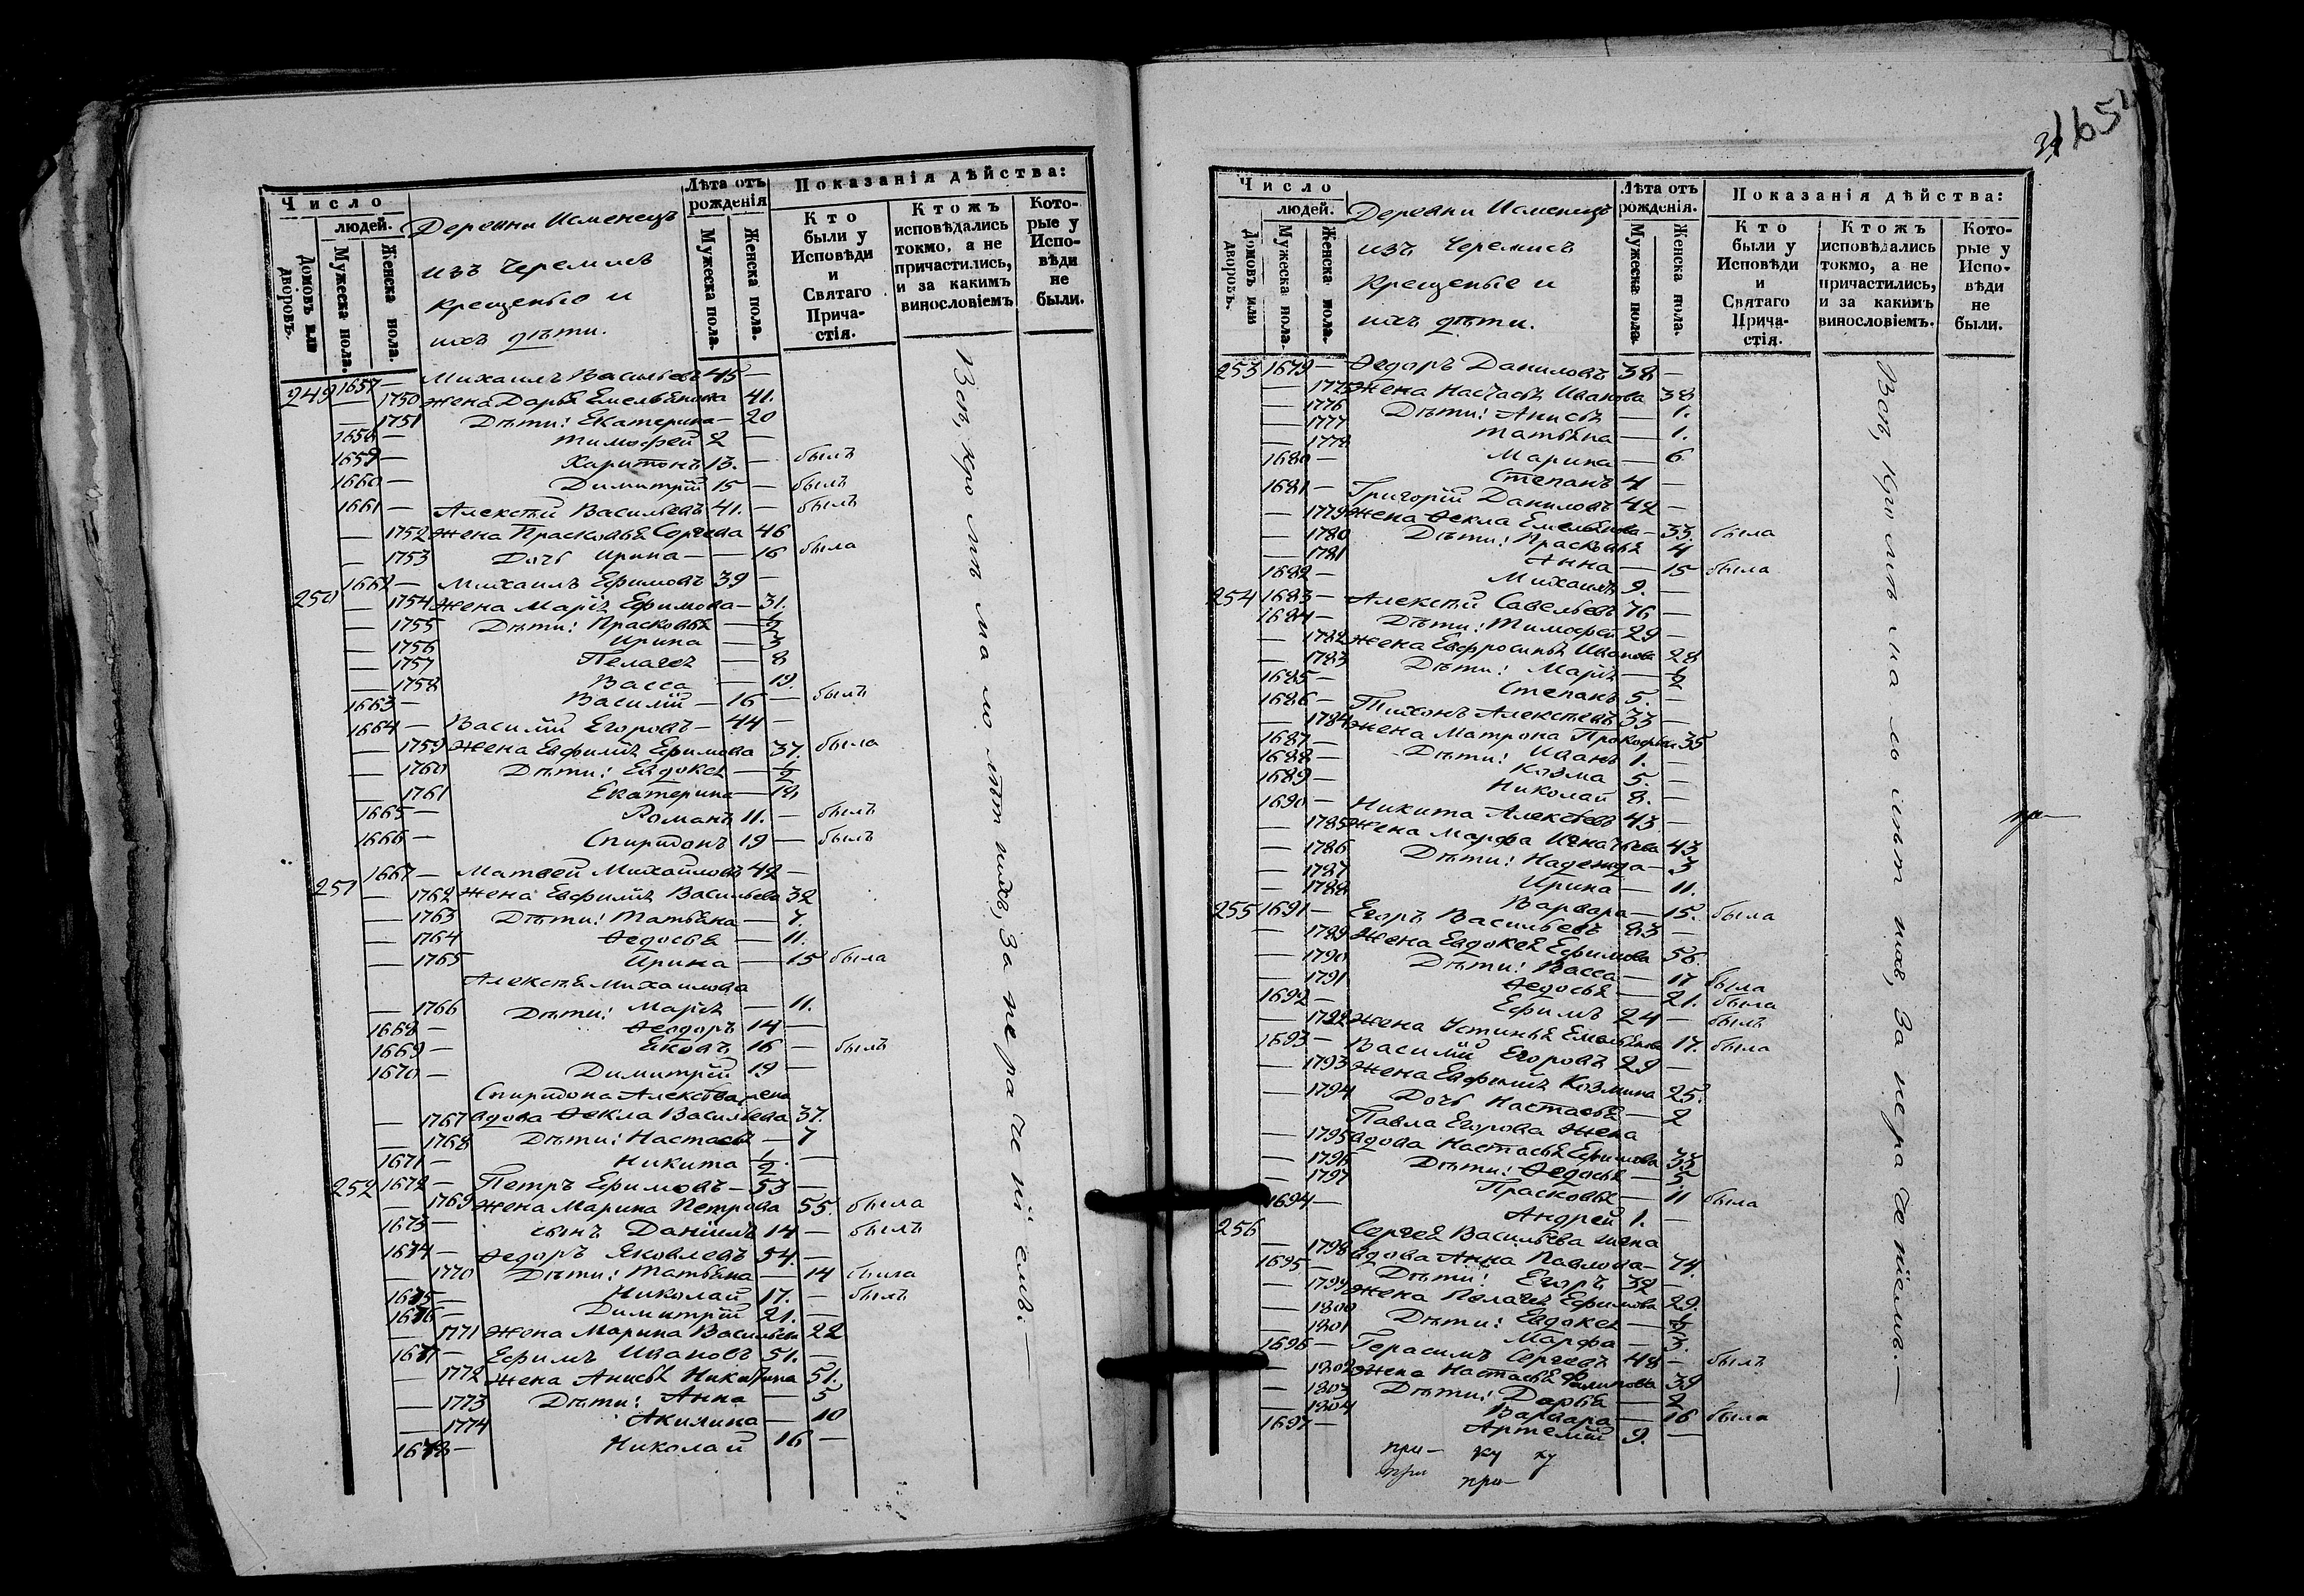 Число
людей.
Домовъ или дворовъ.
Мужеска пола.
Женска пола.
Деревни Исменецъ
изъ Черемисъ
крещеные и
ихъ дѣти.
Лѣта отъ рожденія
Мужеска пола.
Женска пола.
Показанія дѣйства:
Кто были у Исповѣди и Святаго Причастія.
Ктожъ исповѣдались токмо, а не причастились, и за какимъ винословіемъ
Которые у Исповѣди не были.
249 1657 — Михаилъ Васильевъ 45 —
— 1750 Жена Дарья Емельянова 41.
— 1751 Дѣти: Екатерина — 20
1658 — Тимофей 2 —
1659 — Харитонъ 13. — былъ
1660 — Димитрій 15 — былъ
1661 — Алексѣй Васильевъ 41. — былъ
— 1752 Жена Прасковья Сергеева 46
— 1753 Дочь Ирина — — 16 была
250 1662 — Михаилъ Ефимовъ 39 —
— 1754 Жена Марія Ефимова — 31.
— 1755 Дѣти: Прасковья — ½
— 1756 Ирина — 3
— 1757 Пелагея — 8
— 1758 Васса — 19.
1663 — Василій — 16 — былъ
1664 — Василій Егоровъ — 44 —
— 1759 Жена Евфимія Ефимова 37. была
— 1760 Дѣти: Евдокея — ½
— 1761 Екатерина —
1665 — Романъ 11. — былъ
1666 — Спиридонъ 19 — былъ
251 1667 — Матвей Михайловъ 42 —
— 1762 Жена Евфимія Васильева 32
— 1763 Дѣти: Татьяна — 7.
— 1764 Ѳедосья — 11.
— 1765 Ирина — 15 была
Алексѣя Михаилова
— 1766 Дѣти: Марія — 11.
1668 — Ѳеодоръ 14 —
1669 — Яковъ 16 — былъ
1670 — Димитрій 19 —
Спиридона Алексѣева жена
— 1767 вдова Ѳекла Васильева 37.
— 1768 Дѣти: Настасья — 7
1671 — Никита ½. —
252 1672 — Петръ Ефимовъ — 53 —
— 1769 Жена Марина Петрова 55. была
1673 — сынъ Даніилъ 14 — былъ
1674 — Ѳедоръ Яковлевъ 54. —
— 1770 Дѣти: Татьяна — 14 была
1675 — Николай 17. — былъ
1676 — Димитрій 21. —
— 1771 Жена Марина Васильева 22
1677 — Ефимъ Ивановъ 51. —
— 1772 Жена Анисья Никитина 51.
— 1773 Дѣти: Анна — 5
— 1774 Акилина — 10
1678 — Николай 16 —
Всѣ, кромѣ малолѣтнихъ, за нераченіемъ. —
165
Число
людей.
Домовъ или дворовъ.
Мужеска пола.
Женска пола.
Деревни Исменецъ
изъ Черемисъ
крещеные и
ихъ дѣти.
Лѣта отъ рожденія.
Мужеска пола.
Женска пола.
Показанія дѣйства:
Кто были у Исповѣди и Святаго Причастія.
Ктожъ исповѣдались токмо, а не причастились, и за какимъ винословіемъ.
Которые у Исповѣди не были.
253 1679 — Ѳедоръ Даниловъ 38 —
— 1775 Жена Настасья Иванова 38
— 1776 Дѣти: Анисья — 1.
— 1777 Татьяна — 1.
— 1778 Марина — 6
1680 — Степанъ 4 —
1681 — Григорій Даниловъ 42 —
— 1779 Жена Ѳекла Емельянова — 33. была
— 1780 Дѣти: Прасковья 4
— 1781 Анна — 15 была
1682 — Михаилъ 9. —
254 1683 — Алексѣй Савельевъ 76 —
1684 — Дѣти: Тимофей 29 —
— 1782 Жена Евфросинья Иванова 28
— 1783 Дѣти: Марія — ½
1685 — Степанъ 5. —
1686 — Тихонъ Алексѣевъ 33 —
— 1784 Жена Матрона Прокофьева 35
1687 — Дѣти: Иванъ 1. —
1688 — Козма 5. —
1689 — Николай 8. —
1690 — Никита Алексѣевъ 43 —
— 1785 Жена Марфа Игнатьева 43
— 1786 Дѣти: Надежда — 3
— 1787 Ирина — 11.
— 1788 Варвара — 15. была
255 1691 — Егоръ Васильевъ 83 —
— 1789 Жена Евдокея Ефимова 56.
— 1790 Дѣти: Васса — 17 была
— 1791 Ѳедосья — 21. была
1692 — Ефимъ 24 — былъ
— 1792 Жена Устинья Емельянова 17. была
1693 — Василій Егоровъ 29 —
— 1793 Жена Евфимія Козмина 25.
— 1794 Дочь Настасья — 2
Павла Егорова Жена
— 1795 вдова Настасья Ефимова 33
— 1796 Дѣти: Ѳедосья — 5.
— 1797 Прасковья — 11 была
1694 — Андрей 1. —
256 Сергея Васильева жена
— 1798 вдова Анна Павлова — 74.
1695 — Дѣти: Егоръ 32 —
— 1799 Жена Пелагея Ефимова 29.
— 1800 Дѣти: Евдокея — ½
— 1801 Марфа — 3.
1696 — Герасимъ Сергеевъ 48 — былъ
— 1802 Жена Настасья Филипова 39
— 1803 Дѣти: Дарья — 2
— 1804 Варвара — 16 была
1697 — Артемій 9. —
Всѣ, кромѣ малолѣтнихъ, за нераченіемъ. —